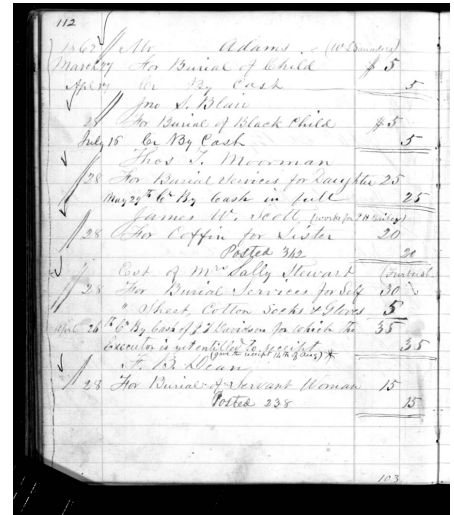 112
1862 Mr Adams (W
March 27 For Burial of Child $ 5
Apl 17 Cr By Cash 5
Jno S. Blair
28 For Burial of Black Child $ 5
July 15 Cr By Cash 5
Thos J. Moorman
28 For Burial Services for Daughter 25
May 29th Cr By Cash in full 25
James W. Scott (works for
28 For Coffin for Sister 20
Posted 342 20
Est of Mrs Sally Stewart
28 For Burial Services for Self 30
" Sheet, Cotton Socks & Gloves 5
April 26th Cr By Cash of J T Davidson for which the 35
Executor is not entitled to receipt 35
(gave the receipt 14th of Aug)
F. B. Dean
28 For Burial of Servant Woman 15
Posted 238 15
103